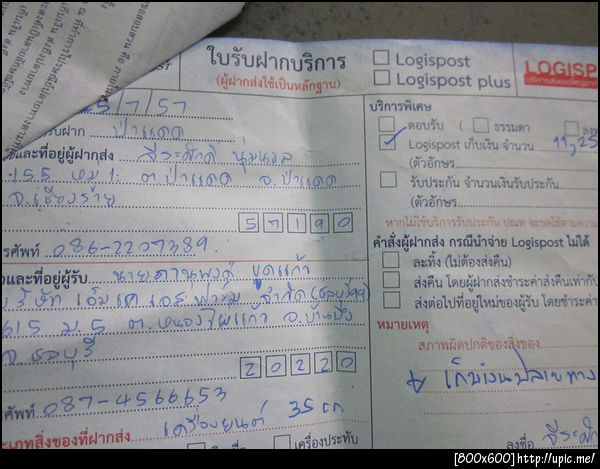 ใบรับฝากบริการ
(ผู้ฝากส่งใช้เป็นหลักฐาน)
Logispost
Logispost plus
LOGISP
25/7/57
รับฝาก ป่าแดด
และที่อยู่ผู้ฝากส่ง ธีระศักดิ์ นุ่มนวล
155 หมู่ 1 ต.ป่าแดด อ.ป่าแดด
จ.เชียงราย
57190
086-2207389
และที่อยู่ผู้รับ นายภานุพงศ์ ขูดแก้ว
บริษัท เอ็ม เค เอส ฟาร์ม จำกัด
615 ม.5 ต.หนองไผ่แก้ว อ.บ้านบึง
จ ชลบุรี
20220
087-4566653
ประเภทสิ่งของที่ฝากส่ง เครื่องยนต์ 35 กก
เครื่องประทับ
บริการพิเศษ
ตอบรับ ( ธรรมดา
Logispost เก็บเงิน จำนวน 11,25
(ตัวอักษร
รับประกัน จำนวนเงินรับประกัน
(ตัวอักษร
หากไม่ใช้บริการรับประกัน ปณท จะชดใช้ตามความ
คำสั่งผู้ฝากส่ง กรณีนำจ่าย Logispost ไม่ได้
ละทิ้ง (ไม่ต้องส่งคืน)
ส่งคืน โดยผู้ฝากส่งชำระค่าส่งคืนเท่ากับ
ส่งต่อไปที่อยู่ใหม่ของผู้รับ โดยชำระค่า
หมายเหตุ
สภาพผิดปกติของสิ่งของ
เก็บเงินปลายทาง
ลงชื่อ ธีระศั
[800x600]http://upic.me/